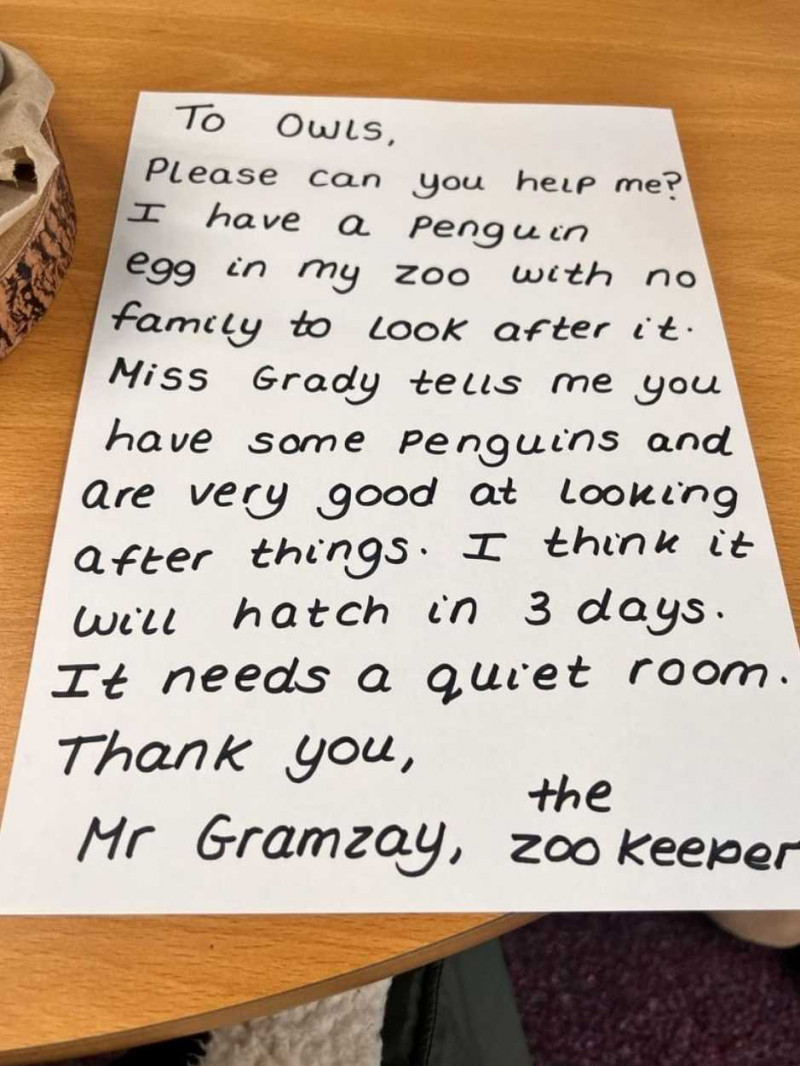 To Owls,
Please can you help me?
I have a penguin
egg in my zoo with no
family to look after it.
Miss Grady tells me you
have some penguins and
are very good at looking
after things. I think it
will hatch in 3 days.
It needs a quiet room.
Thank you,
Mr Gramzay, the
zoo keeper